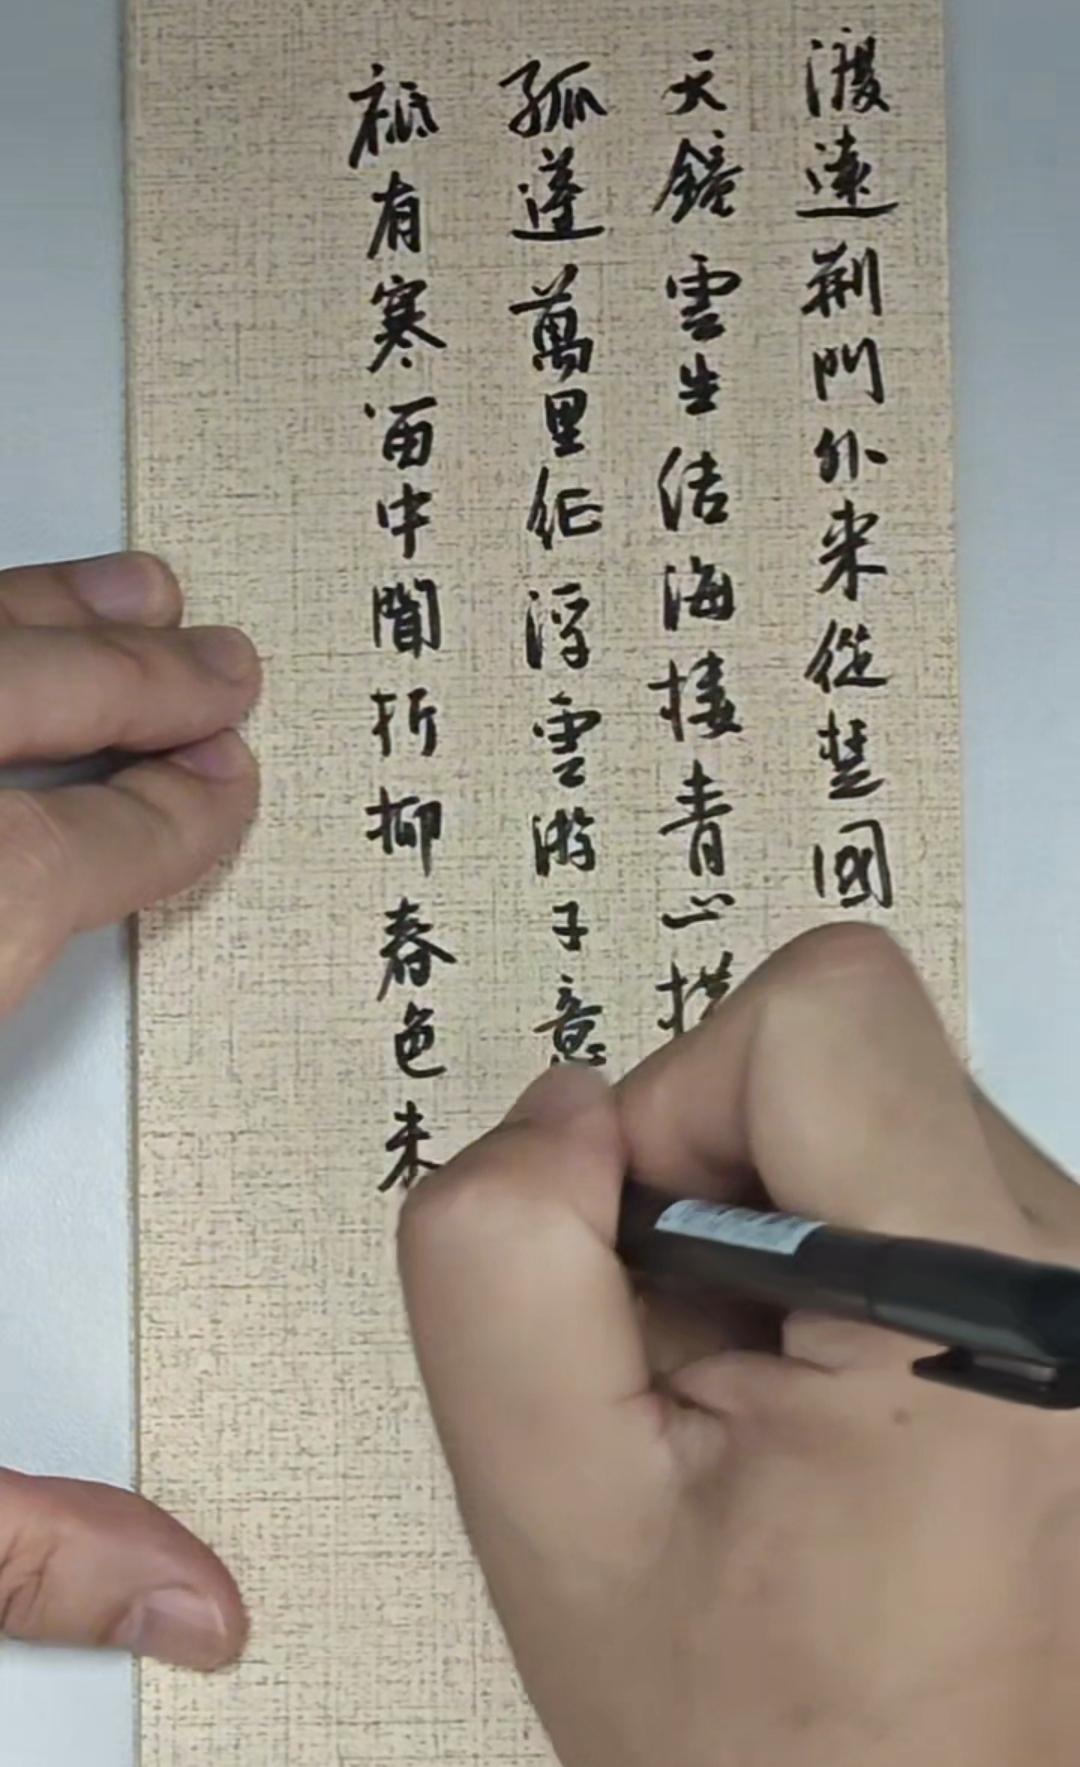 渡遠荊門外来從楚國
天鏡雲生结海樓青山横
孤蓬萬里征浮雲游子意
祗有寒笛中聞折柳春色未